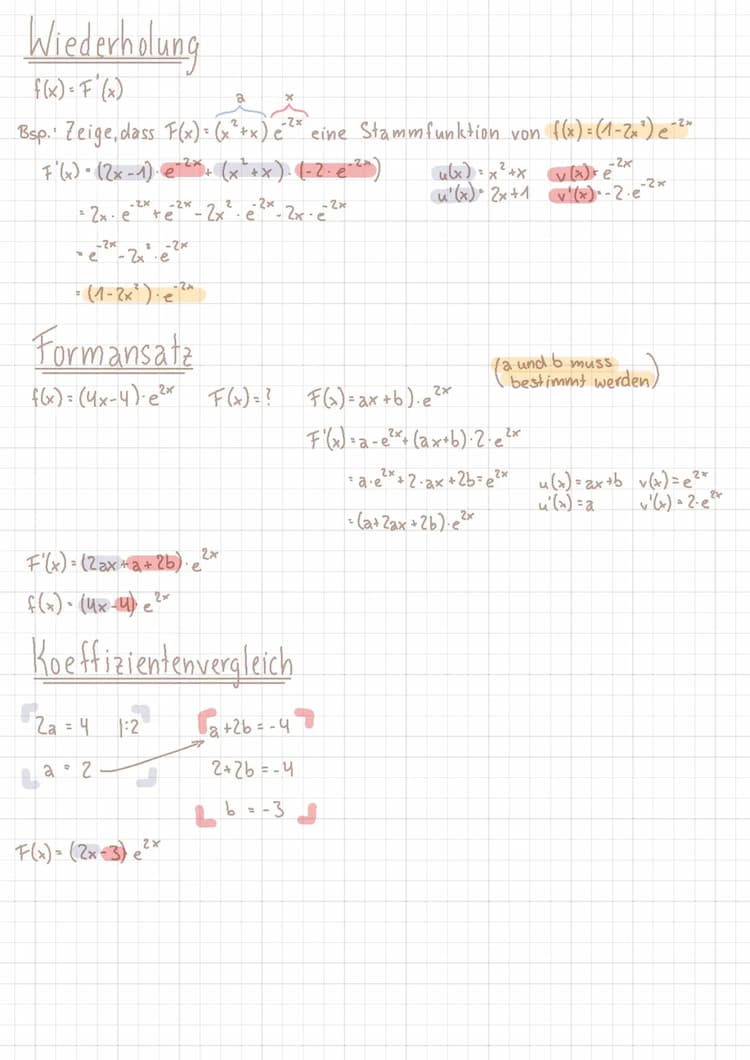 Wiederholung
f(x) = F'(x)
a x
Bsp.: Zeige, dass F(x) = (x²+x) e^-2x eine Stammfunktion von f(x) = (1-2x²) e^-2x
F'(x) = (2x-1) · e^-2x + (x²+x) · (-2 · e^-2x) u(x) = x²+x v(x) = e^-2x
= 2x · e^-2x + e^-2x - 2x² · e^-2x - 2x · e^-2x u'(x) = 2x+1 v'(x) = -2 · e^-2x
= e^-2x - 2x² · e^-2x
= (1-2x²) · e^-2x
Formansatz
(a und b muss
bestimmt werden)
f(x) = (4x-4) · e^2x F(x) = ? F(x) = ax+b) · e^2x
F'(x) = a - e^2x + (ax+b) · 2 · e^2x
= a · e^2x + 2 · ax + 2b = e^2x u(x) = ax+b v(x) = e^2x
u'(x) = a v'(x) = 2 · e^2x
= (a+2ax+2b) · e^2x
F'(x) = (2ax + a + 2b) · e^2x
f(x) = (4x-4) e^2x
Koeffizientenvergleich
2a = 4 |:2 a+2b = -4
a = 2 2+2b = -4
b = -3
F(x) = (2x-3) e^2x